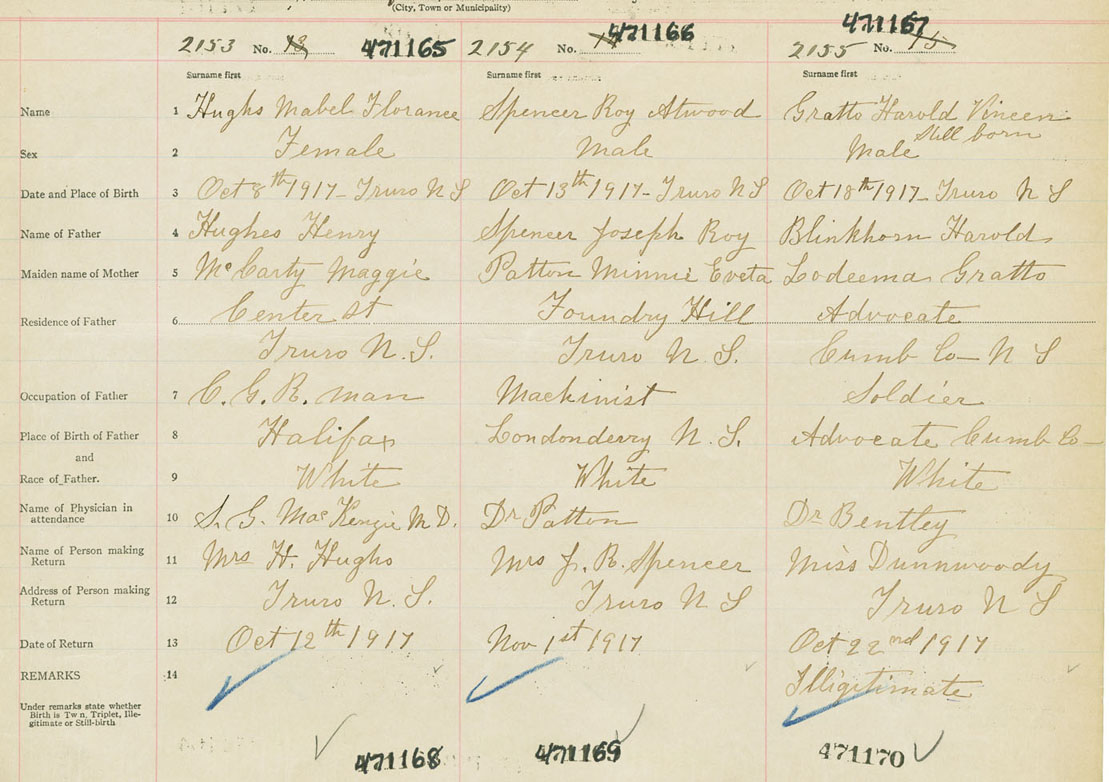 (City, Town or Municipality)
2153 No. 13 471165 2154 No. 471166 2155 No. 15 471167
Surname first Surname first Surname first
Name 1 Hughs Mabel Florance Spencer Roy Atwood Gratto Harold Vincen
Still born
Sex 2 Female Male Male
Date and Place of Birth 3 Oct 8th 1917 - Truro N S Oct 13th 1917 - Truro N S Oct 18th 1917 - Truro N S
Name of Father 4 Hughes Henry Spencer Joseph Roy Blinkhorn Harold
Maiden name of Mother 5 McCarty Maggie Patton Minnie Eveta Lodeema Gratto
Residence of Father 6 Center St Foundry Hill Advocate
Truro N.S. Truro N S. Cumb Co - N S
Occupation of Father 7 C.G.R. man Mackinist Soldier
Place of Birth of Father 8 Halifax Londonderry N.S. Advocate Cumb Co -
and
Race of Father. 9 White White White
Name of Physician in
attendance 10 S. G. MacKenzie M D. Dr Patton Dr Bentley
Name of Person making
Return 11 Mrs H. Hughs Mrs J. R. Spencer Miss Dunnwoody
Address of Person making
Return 12 Truro N.S. Truro N S Truro N S
Date of Return 13 Oct 12th 1917 Nov 1st 1917 Oct 22nd 1917
REMARKS 14 Illigitimate
Under remarks state whether
Birth is Tw n, Triplet, Ille-
gitimate or Still-birth
471168 471169 471170